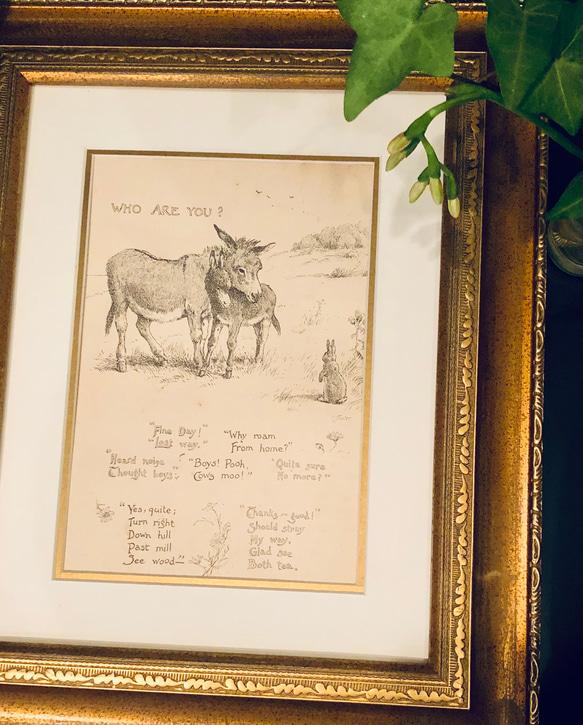 WHO ARE YOU?
"Fine Day!"
"Lost way."
"Why roam
From home?"
"Heard noise
Thought boys."
"Boys! Pooh,
Cows moo!"
"Quite sure
No more?"
"Yes, quite;
Turn right
Down hill
Past mill
See wood—"
"Thanks—good!"
Should stray
My way,
Glad see
Both tea.